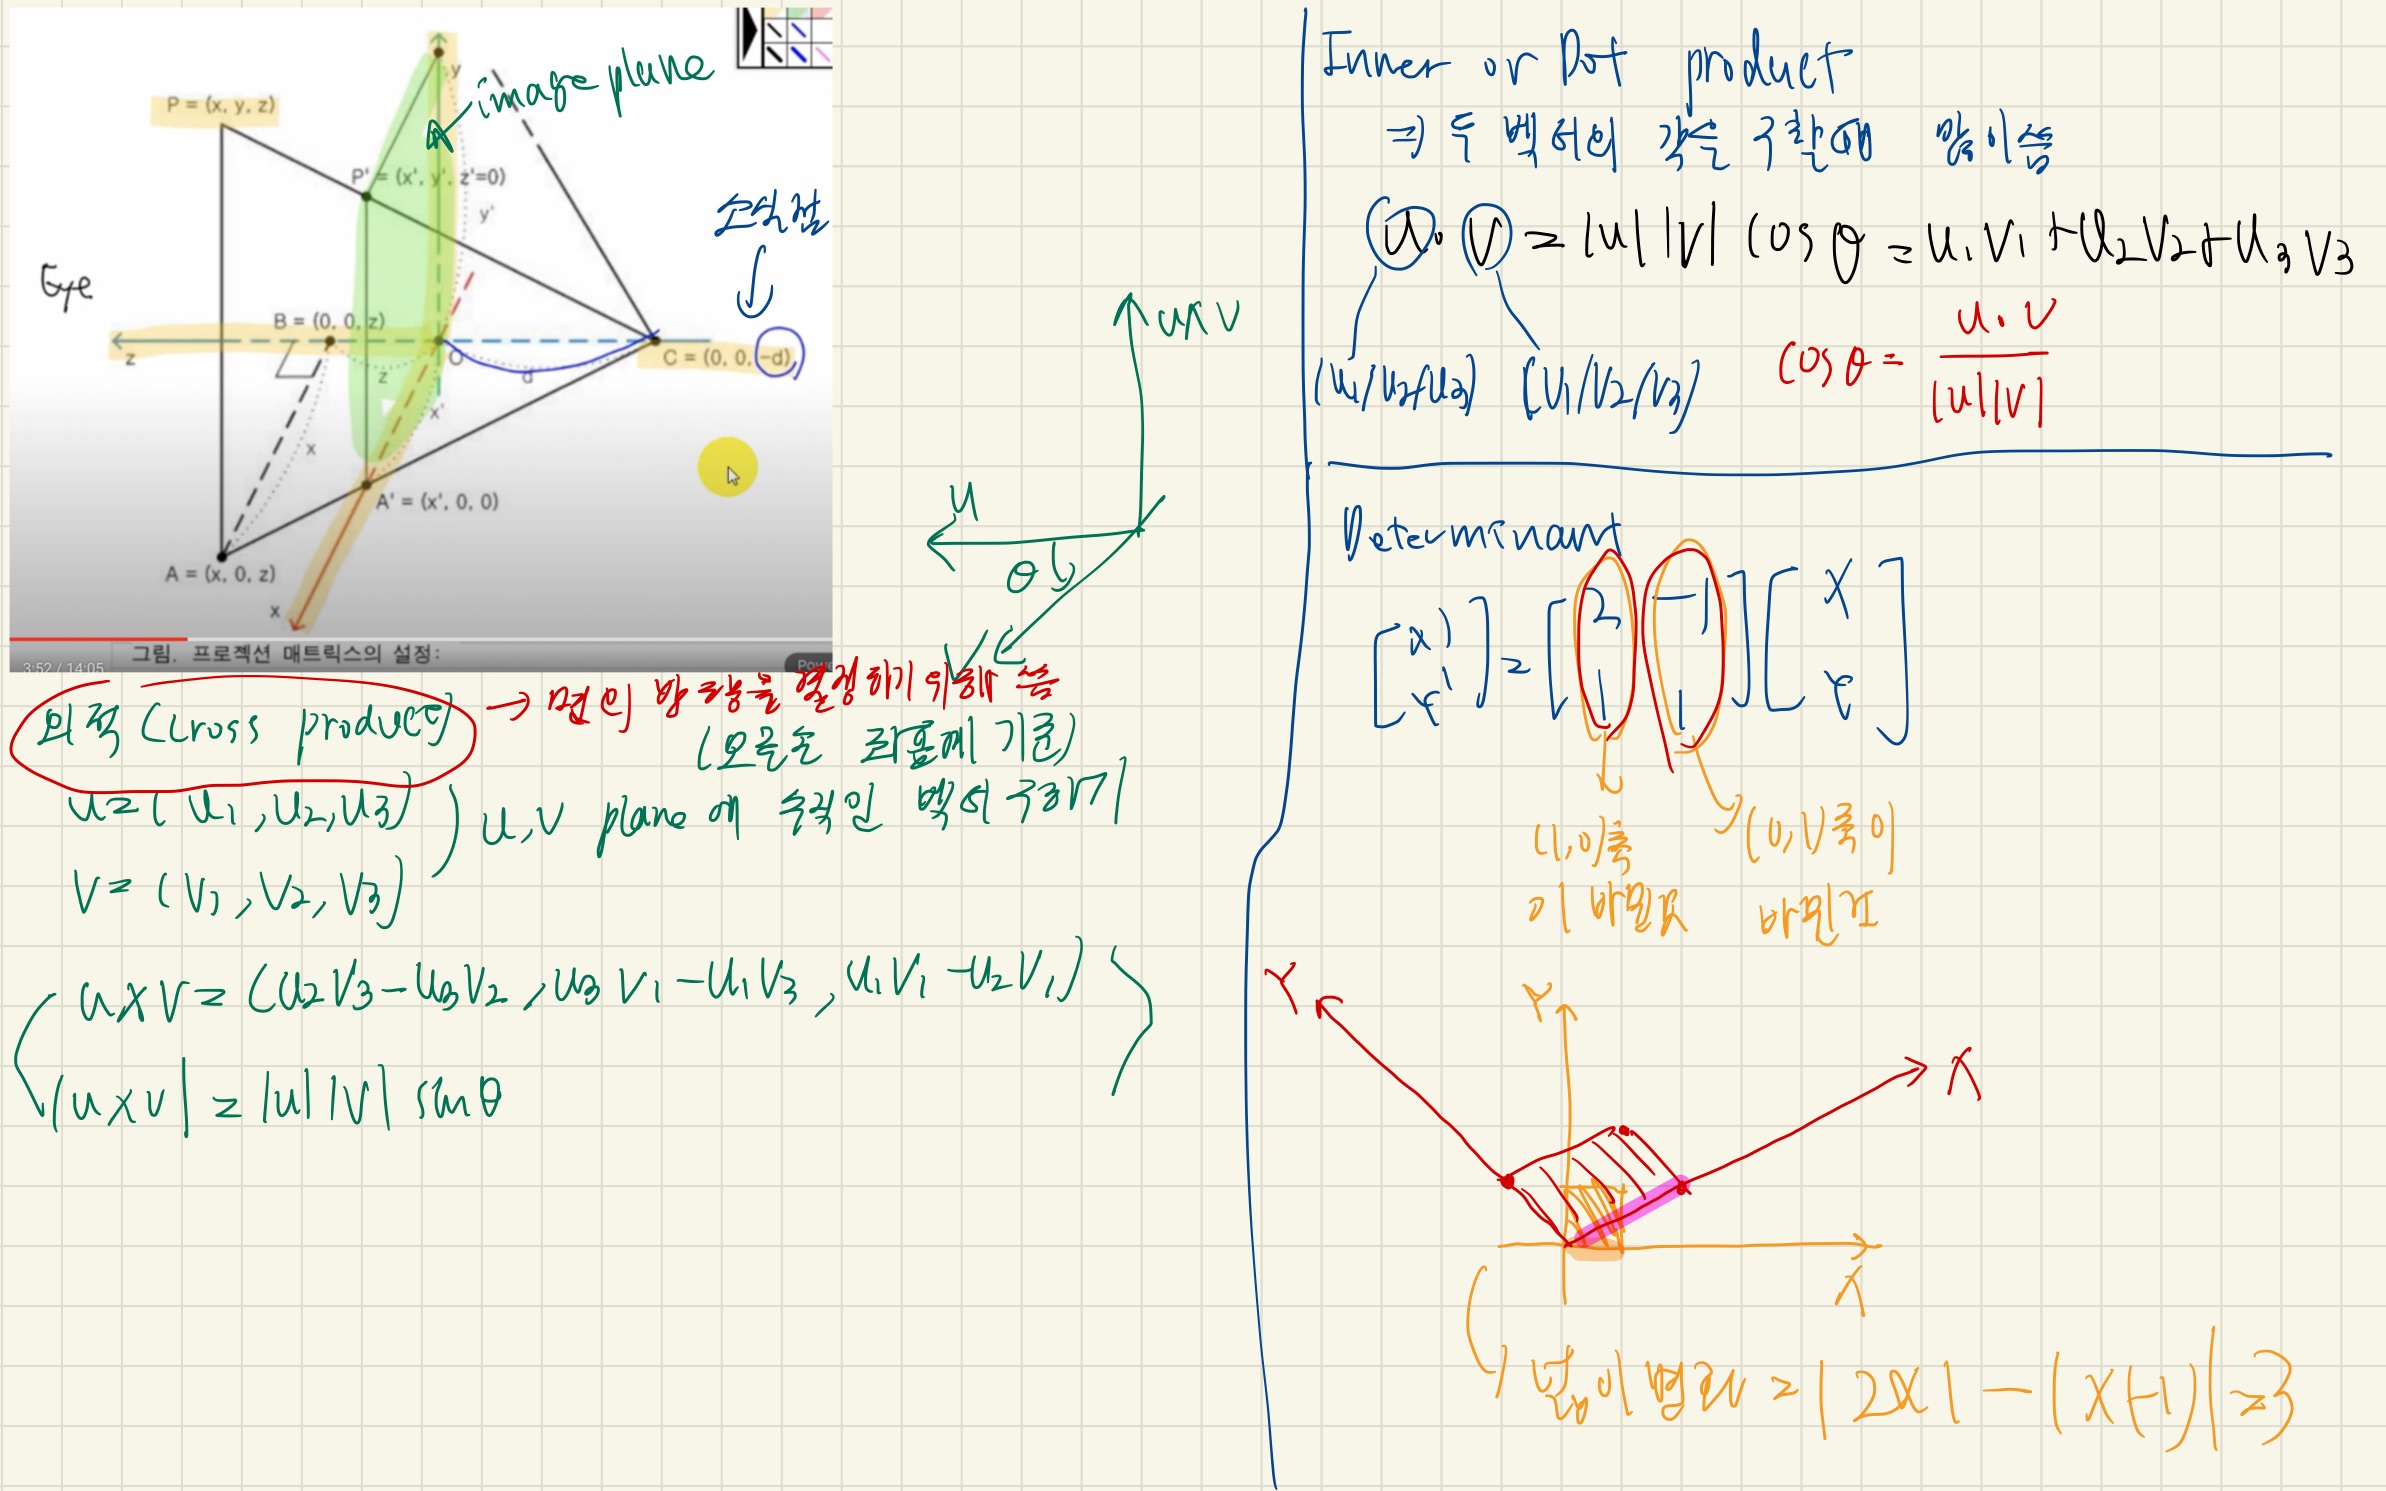 P = (x, y, z)
y
image plane
P' = (x', y', z'=0)
y'
소실점
Eye
B = (0, 0, z)
z
z
O
d
C = (0, 0, -d)
x'
x
A' = (x', 0, 0)
A = (x, 0, z)
x
3:52 / 14:05
그림. 프로젝션 매트릭스의 설정:
u×v
u
θ
v
외적 (Cross product) → 면의 방향을 결정하기 위해 씀
(오른손 좌표계 기준)
u=(u1,u2,u3)
v=(v1,v2,v3)
u,v plane에 수직인 벡터 구하기
u×v=(u2v3-u3v2,u3v1-u1v3,u1v1-u2v1)
|u×v|=|u||v| sinθ
Inner or Dot product
⇒ 두 벡터의 각을 구할때 많이씀
u·v=|u||v| cosθ=u1v1+u2v2+u3v3
(u1/u2/u3) (v1/v2/v3)
cosθ= u·v / |u||v|
Determinant
[x' Y']=[2 -1 1 1][X Y]
(1,0)축
이 바뀐값
(0,1)축이
바뀐값
Y
X
Y
X
넓이변화=|2×1-(1×-1)|=3